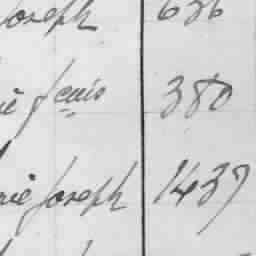 Joseph 636
ie Jenis 380
rie Joseph 1437